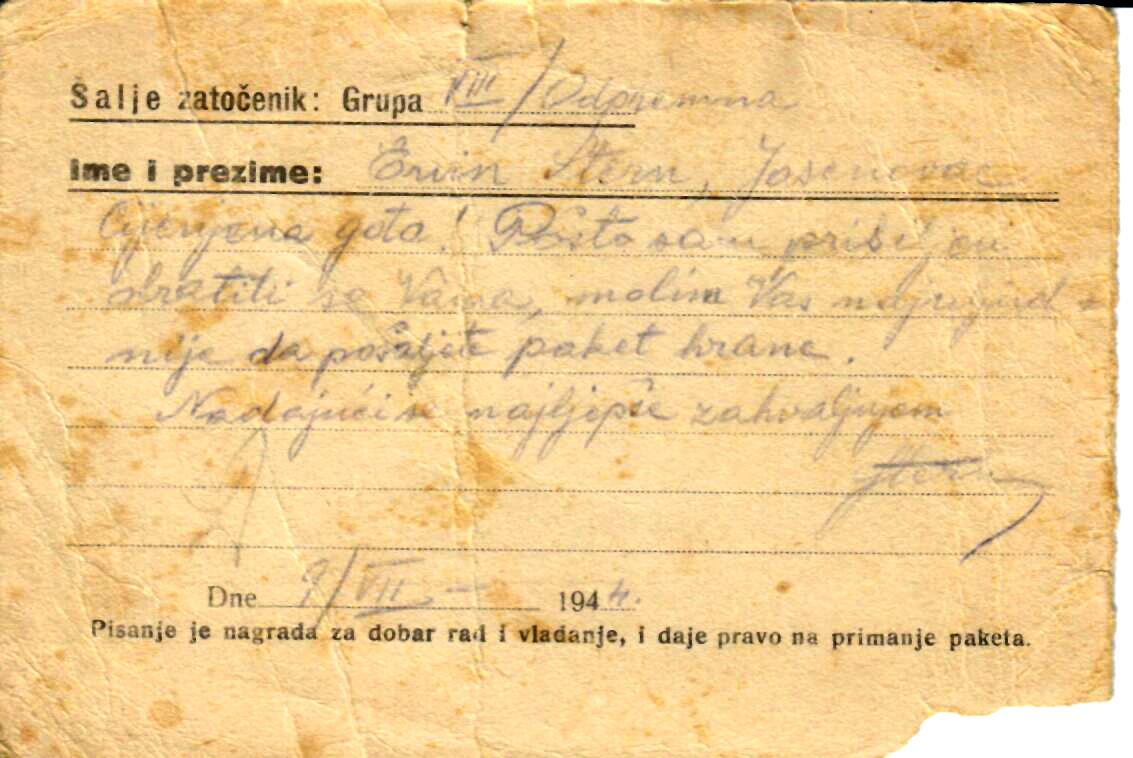 Šalje zatočenik: Grupa VIII/Odpremna
Ime i prezime: Ervin Stern, Jasenovac
Cijenjena gđa! Pošto sam
obratiti sa Vama, molim Vas najujud-
nije da pošaljete paket hrane.
Nadajući se najljepše zahvaljujem
Stern
Dne 9/VII – 1944.
Pisanje je nagrada za dobar rad i vladanje, i daje pravo na primanje paketa.